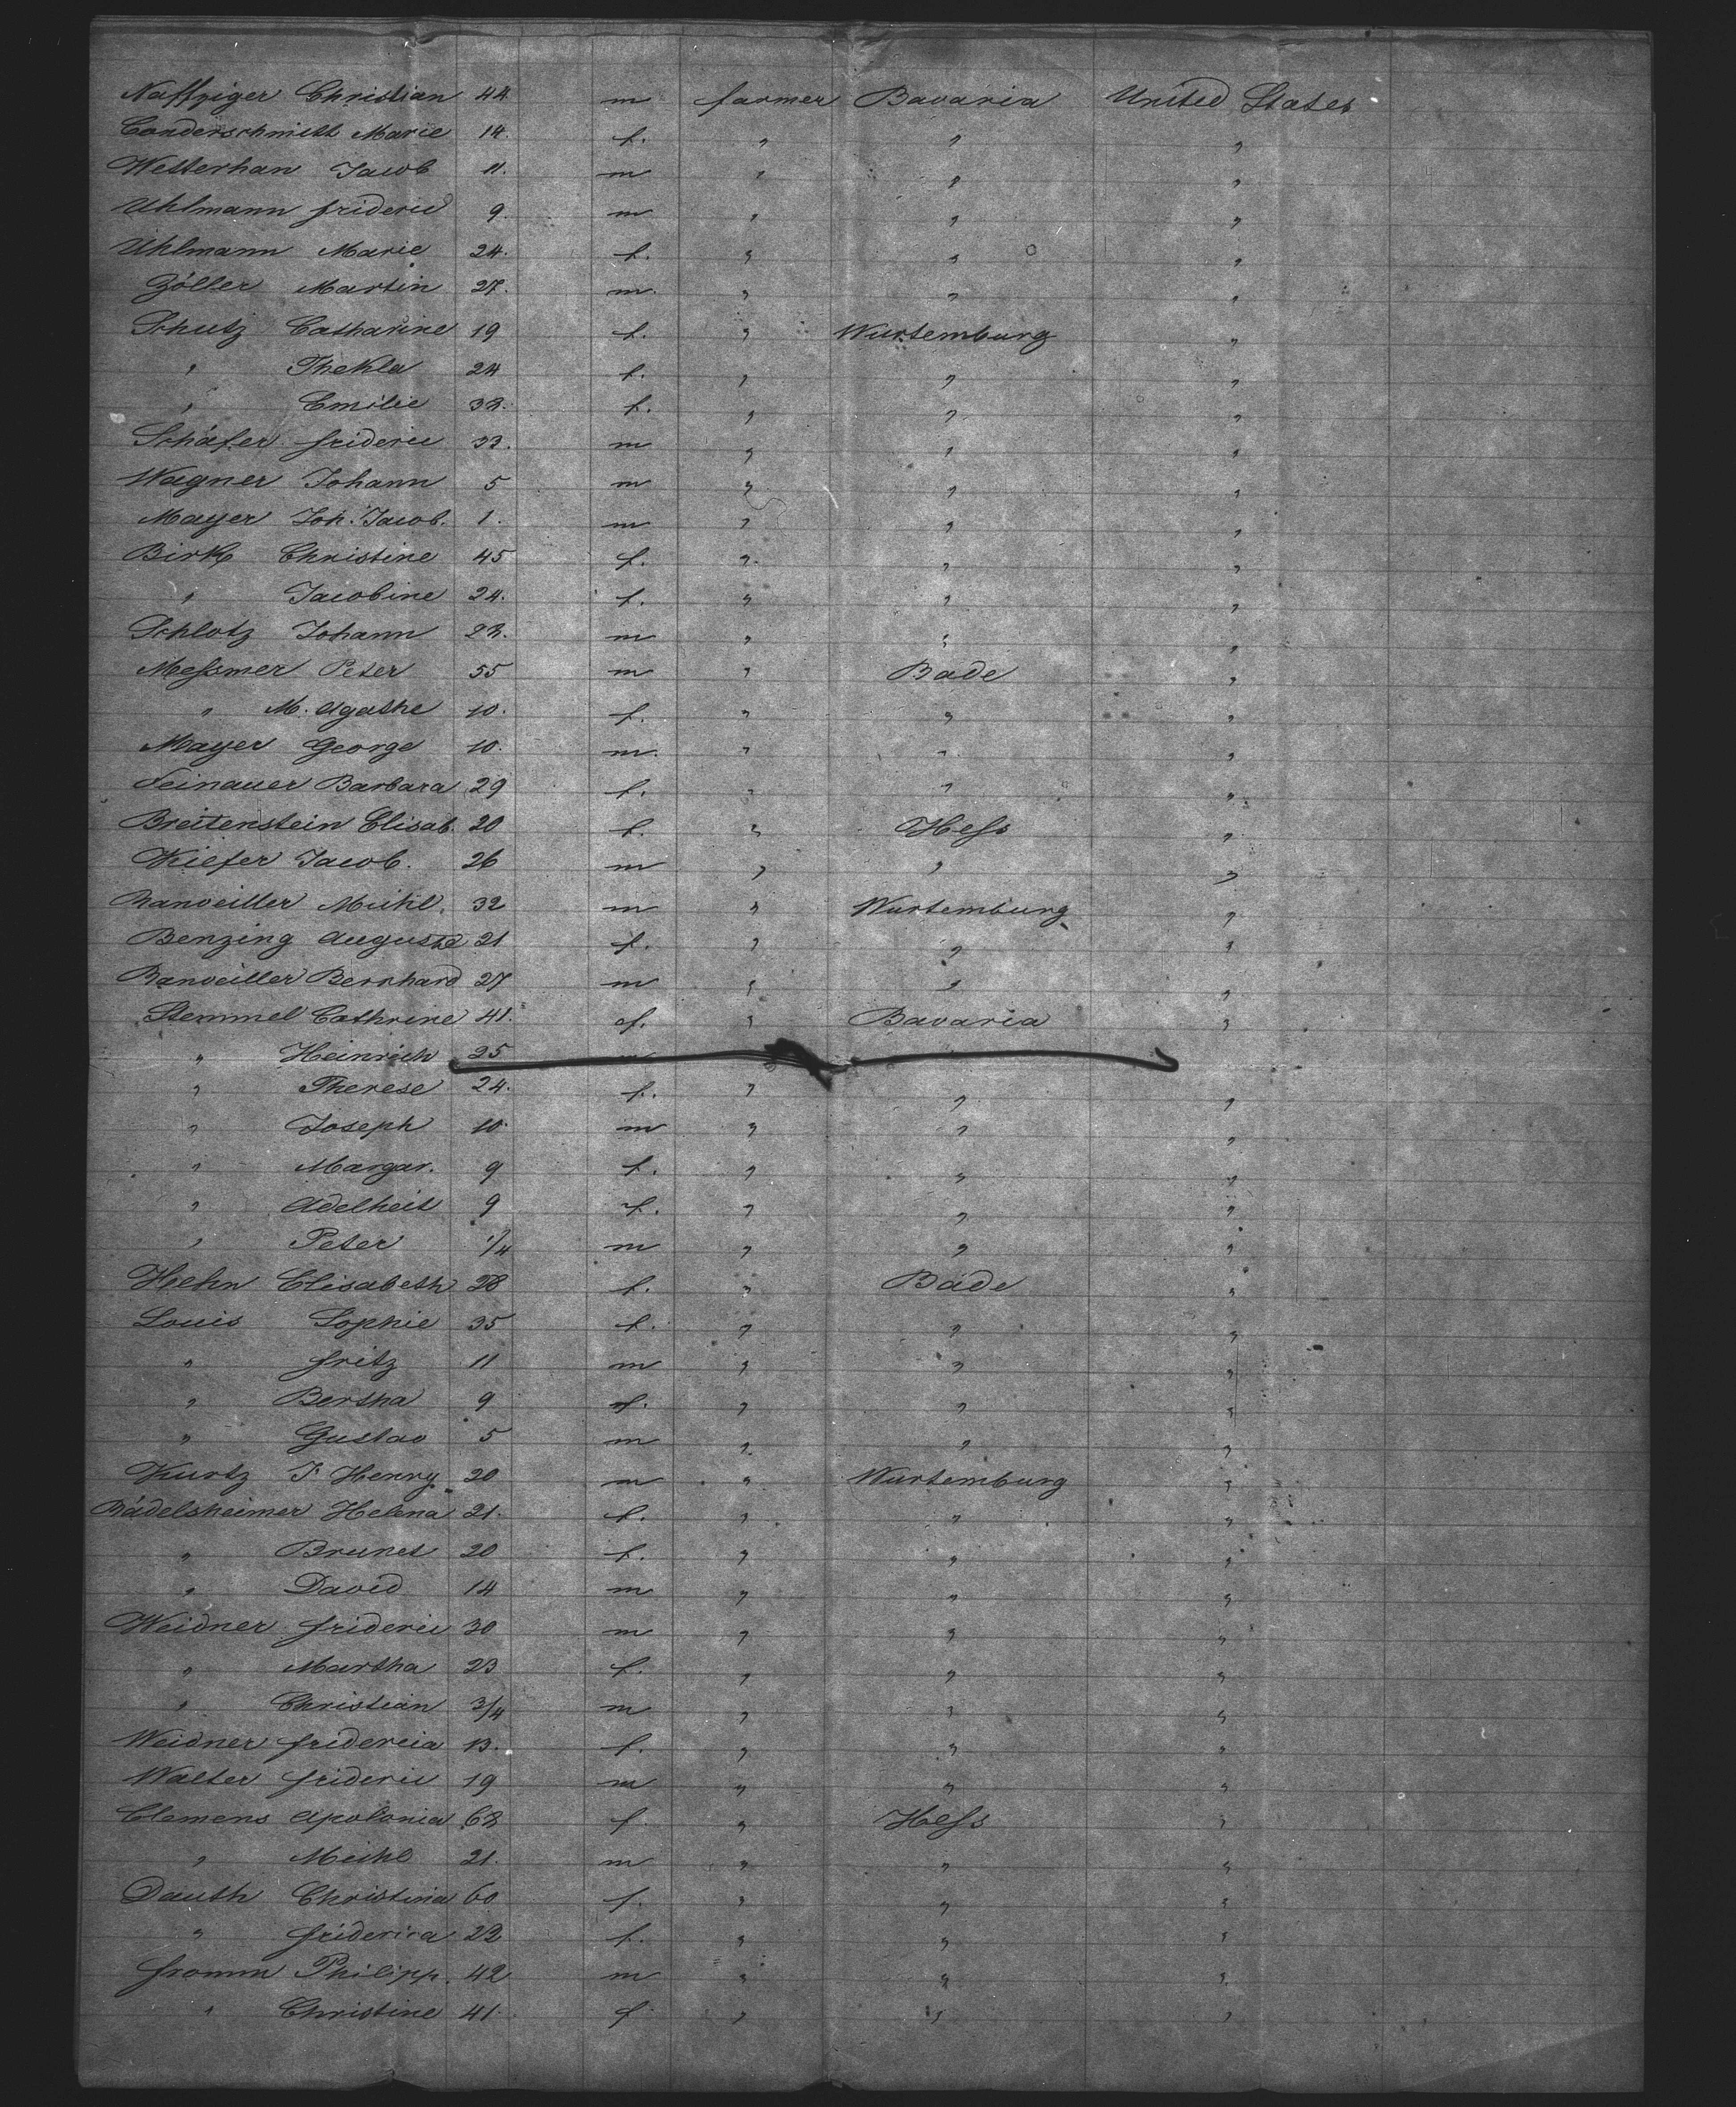 Naffziger Christian 44 m farmer Bavaria United States
Conderschmitt Marie 14. f. " " "
Westerhan Jacob 11. m " " "
Uhlmann frideric 9. m " " "
Uhlmann Marie 24. f. " " "
Zöller Martin 27. m. " " "
Schutz Catharine 19 f. " Wurtemburg "
" Thekla 24 f. " " "
" Emilie 32. f. " " "
Schäfer frideric 33. m " " "
Wagner Johann 5 m " " "
Mayer Joh. Jacob. 1. m " " "
Birk Christine 45 f. " " "
" Jacobine 24. f. " " "
Schlotz Johann 22. m " " "
Messmer Peter 55 m " Bade "
" M. Agathe 10. f. " " "
Mayer George 10. m. " " "
Feinauer Barbara 29 f. " " "
Breitenstein Elisab. 20 f. " Hess "
Kiefer Jacob. 26 m " " "
Banveiller Michl. 32 m " Wurtemburg "
Benzing Augusta 21 f. " " "
Banveiller Bernhard 27 m " " "
Stemmel Cathrine 41. f. " Bavaria "
" Heinrich 25
" Therese 24. f. " " "
" Joseph 10 m " " "
" Margar. 9 f. " " "
" Adelheit 9 f. " " "
" Peter 1/4 m " " "
Hehn Elisabeth 28 f. " Bade "
Louis Sophie 35 f. " " "
" fritz 11 m " " "
" Bertha 9 f. " " "
" Gustav 5 m " " "
Kurtz J. Henry 20 m " Wurtemburg "
Bädelsheimer Helena 21. f. " " "
" Brunet 20 f. " " "
" David 14 m " " "
Weidner frideric 30 m " " "
" Martha 23 f. " " "
" Christian 3/4 m " " "
Weidner fridereia 13. f. " " "
Walter frideric 19 m " " "
Clemens Apolonia 62 f " Hess "
" Michl 21. m " " "
Dauth Christina 60 f. " " "
" friderica 22 f. " " "
fromm Philipp. 42 m " " "
" Christine 41. f. " " "